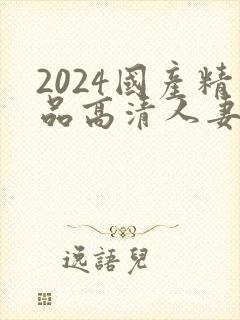 2024國產精
品高清人妻
逸語兒